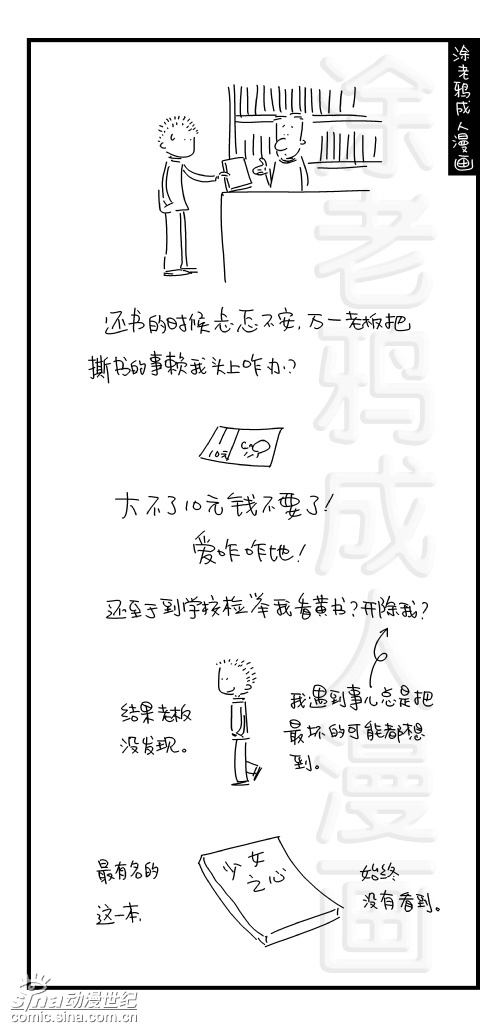 涂老鸦成人漫画
还书的时候忐忑不安,万一老板把
撕书的事赖我头上咋办?
10元
大不了10元钱不要了!
爱咋咋地!
还至于到学校检举我看黄书?开除我?
结果老板
没发现。
我遇到事儿总是把
最坏的可能都想
到。
最有名的
这一本,
少女
之心
始终
没有看到。
涂老鸦成人漫画
sina动漫世纪
comic.sina.com.cn